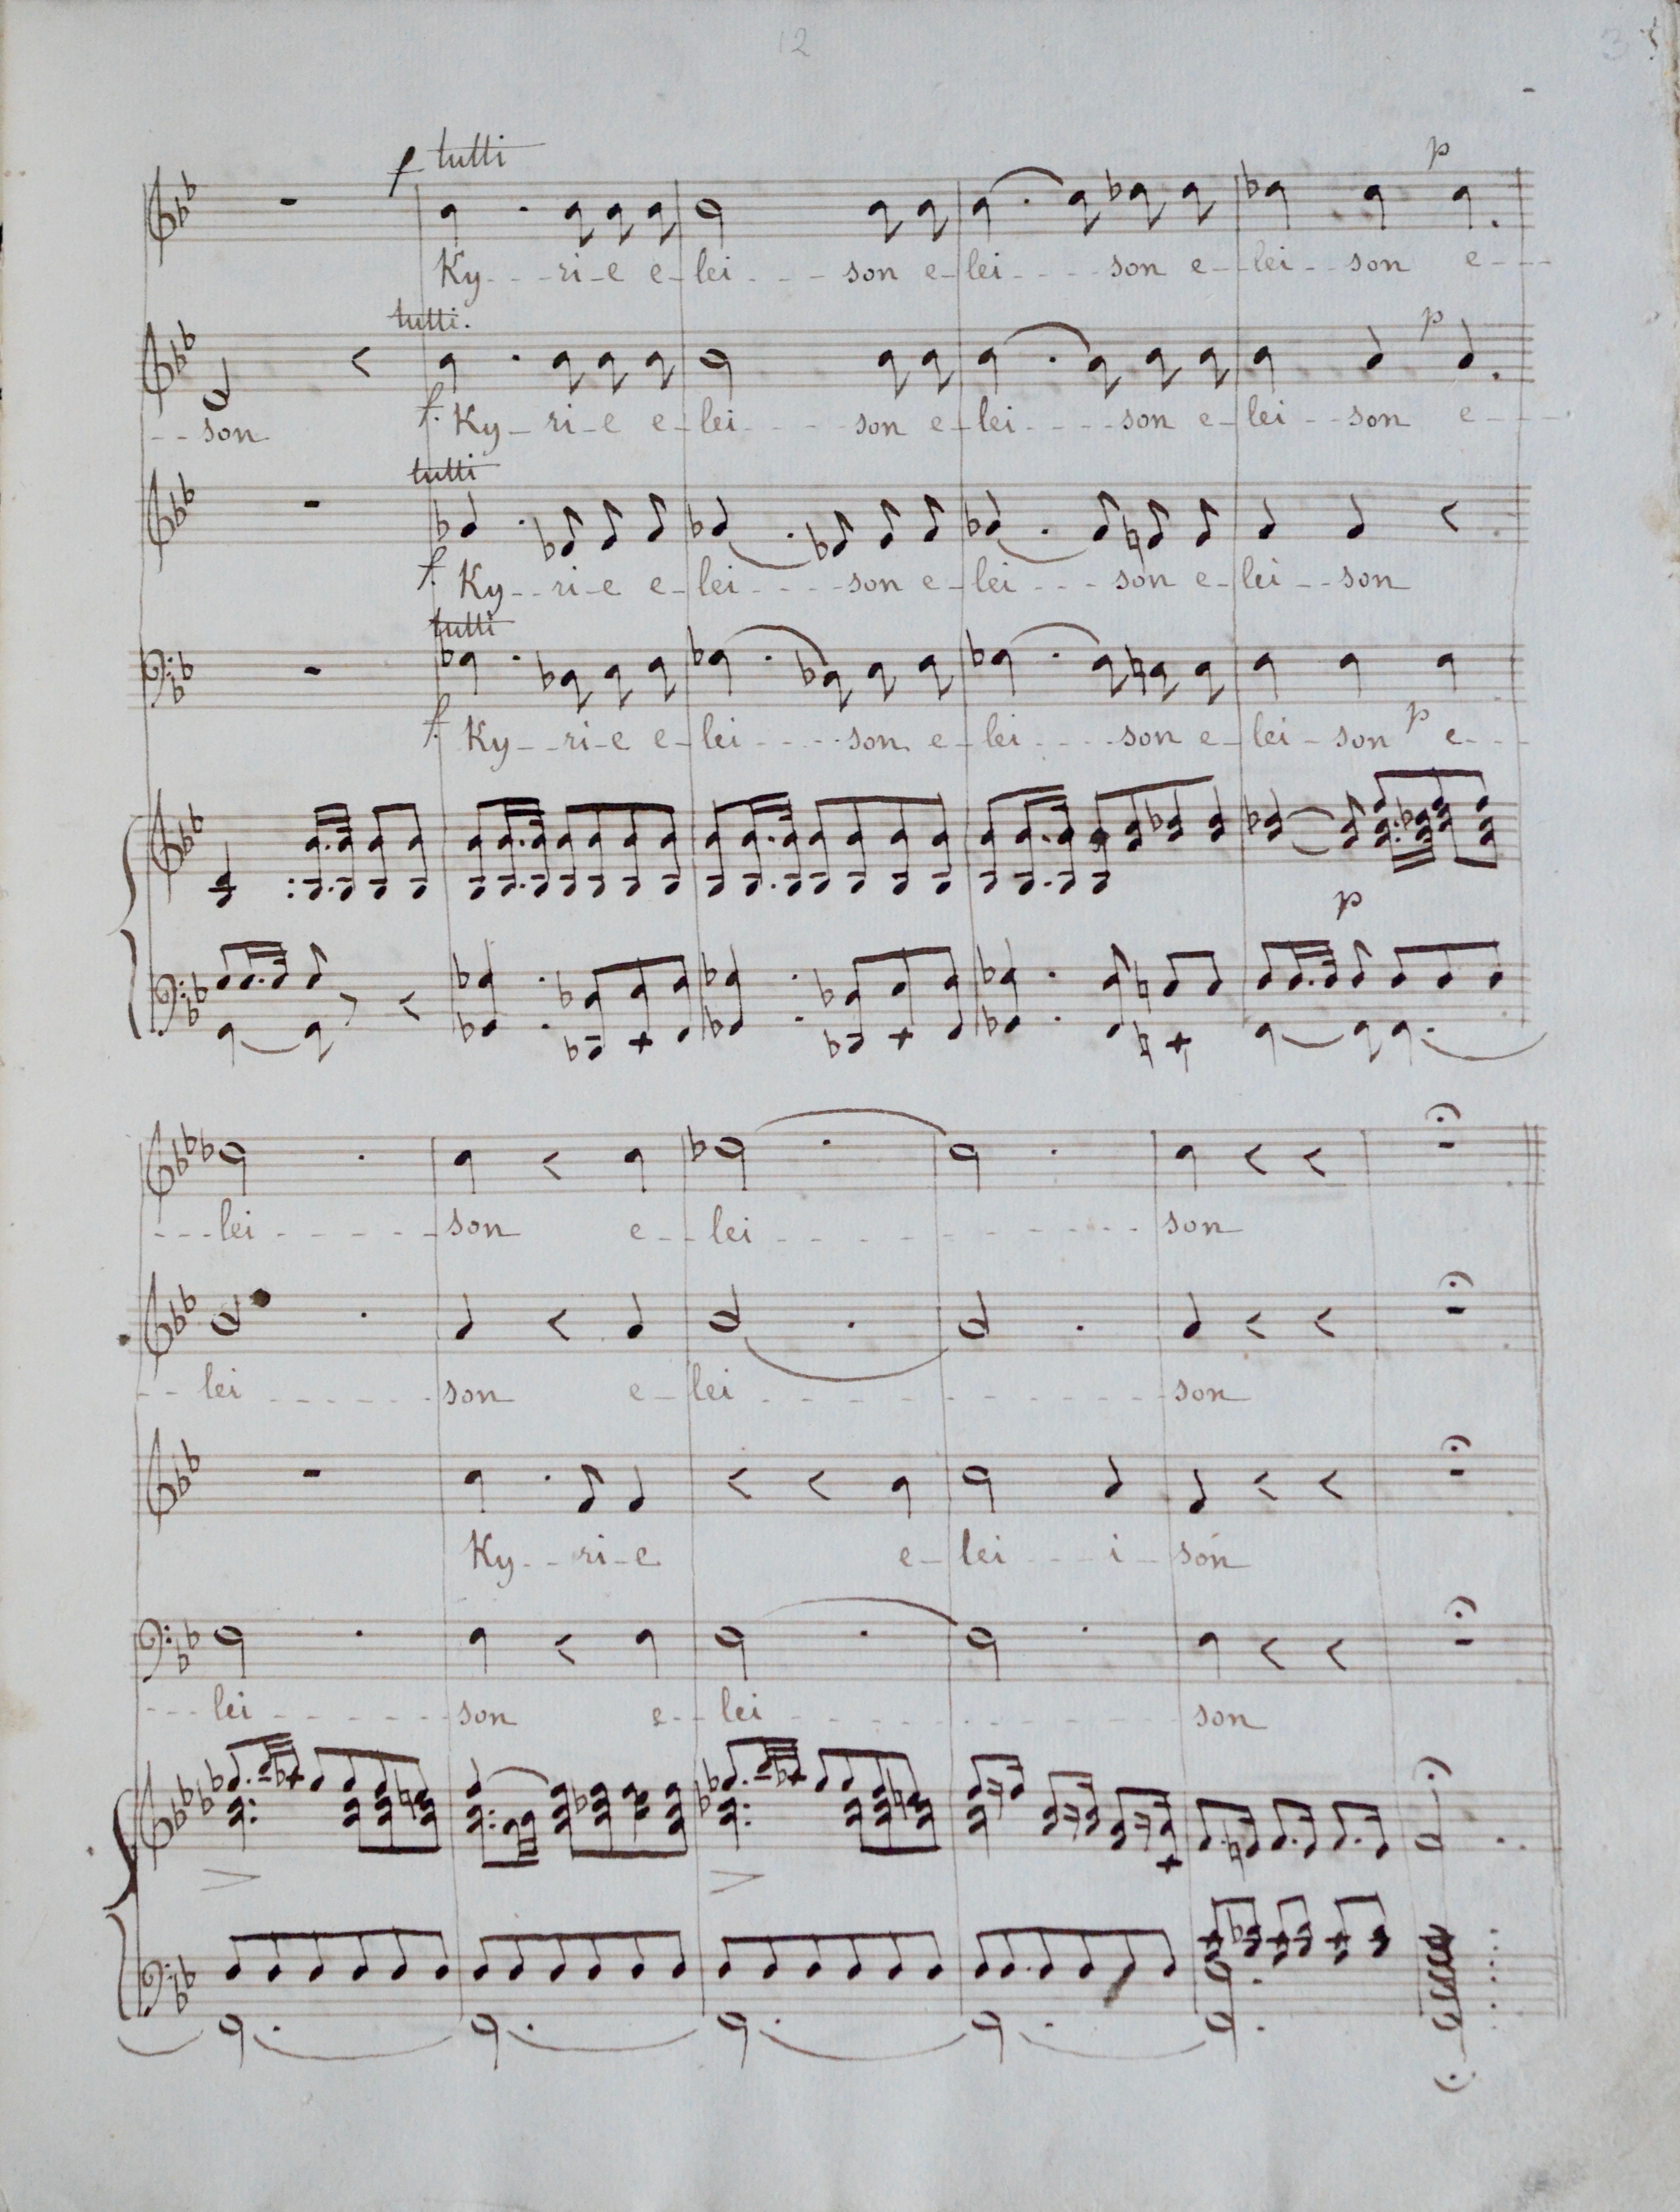 12
3
f tutti
p
Ky - - - ri - e e - lei - - - son e - lei - - - - son e - - lei - - son e - - -
tutti.
p
- - son f. Ky - ri - e e - lei - - - - son e - lei - - - - son e - lei - - son e - - -
tutti
f. Ky - - ri - e e - lei - - - - son e - lei - - - son e - lei - - son
tutti
f. Ky - - ri - e e - lei - - - - son e - lei - - - - son e - lei - son p e - - -
p
- - - lei - - - - - son e - - lei - - - - - - - - - son
- - lei - - - - - son e - lei - - - - - - - - - - son
Ky - - ri - e e - lei - - - i - son
- - - lei - - - - - - son e - - lei - - - - - - - - son